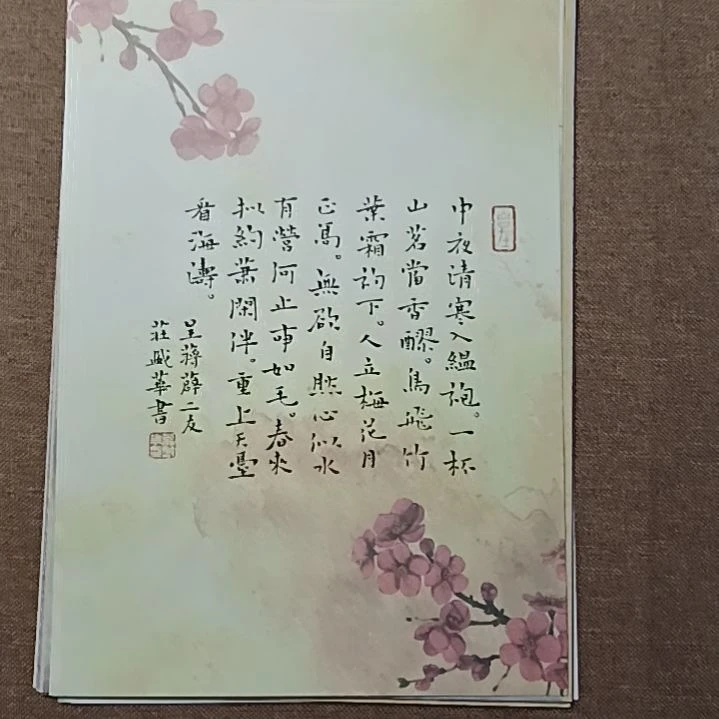 中夜清寒入縕袍。一杯
山茗當香醪。鳥飛竹
葉霜初下。人立梅花月
正高。無欲自然心似水
有營何止事如毛。春來
擬約蕭閑伴。重上天臺
看海濤。
呈蔣薛二友
莊盛華書